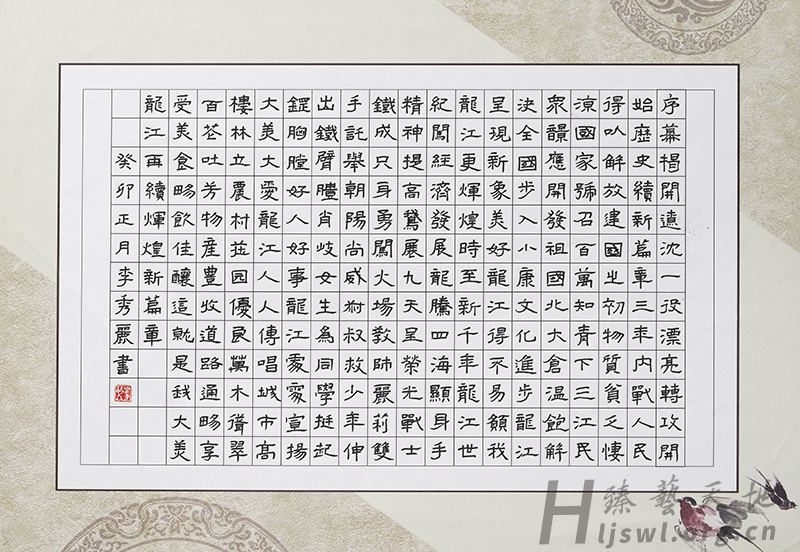 序幕揭開遼沈一役漂亮轉攻開
始歷史續新篇章三年內戰人民
得以解放建國之初物質貧乏悽
涼國家號召百萬知青下三江民
衆韻應開發祖國北大倉溫飽解
決全國步入小康文化進步龍江
呈現新象美好龍江得不易願我
龍江更輝煌時至新千年龍江世
紀闖經濟發展龍騰四海顯身手
精神提高展九天呈榮光戰士
鐵成只身勇闖火場教師麗莉雙
手託舉朝陽尚威叔救少年伸
出鐵臂肖岐女生為同學挺起
鋼胸膛好人好事龍江處處宣揚
大美大愛龍江人人傳唱城市高
樓林立農村莊園優良萬木聳翠
百花吐芳物產豐收道路通暢享
受美食暢飲佳釀這就是我大美
龍江再續輝煌新篇章
癸卯正月李秀麗書
臻藝天地
Hljswl.org.cn